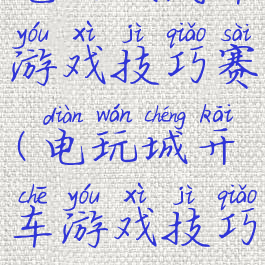 yóu xì jì qiǎo sài
游戏技巧赛
diàn wán chéng kāi
(电玩城开
chē yóu xì jì qiǎo
车游戏技巧